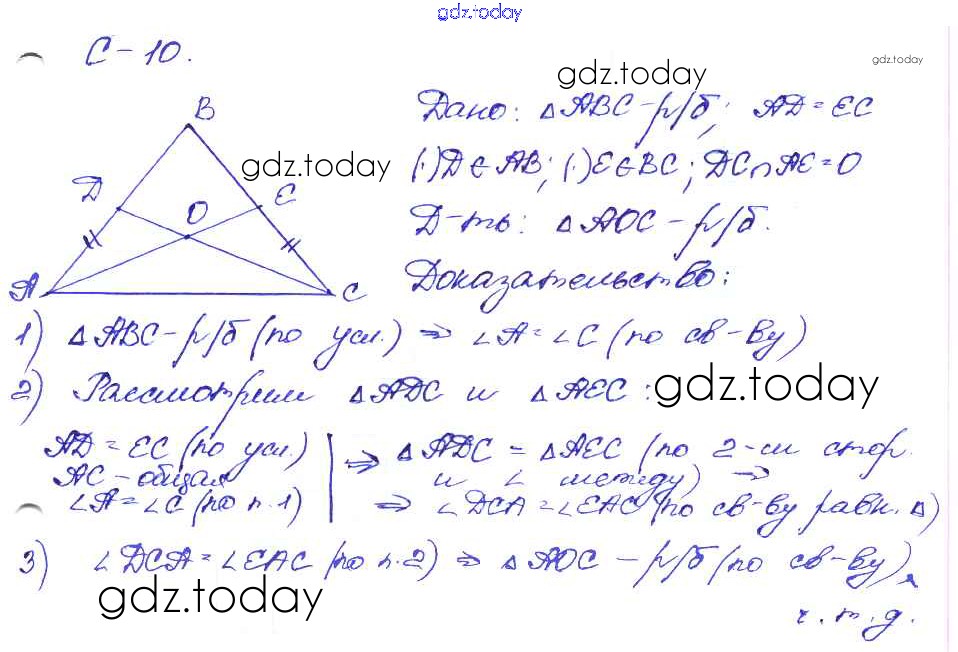 gdz.today
С-10.
gdz.today
gdz.today
B
Дано: △ABC-р/б; AD=EC
gdz.today
D
E
O
(·)D∈AB; (·)E∈BC; DC∩AE=O
Д-ть: △AOC-р/б.
A
C
Доказательство:
1) △ABC-р/б (по усл.) ⇒ ∠A=∠C (по св-ву)
2) Рассмотрим △ADC и △AEC:
gdz.today
AD=EC (по усл.)
AC-общая
∠A=∠C (по п.1)
⇒ △ADC = △AEC (по 2-м стор.
и ∠ между) ⇒
⇒ ∠DCA=∠EAC (по св-ву равн. △)
3) ∠DCA=∠EAC (по п.2) ⇒ △AOC-р/б (по св-ву),
gdz.today
ч.т.д.